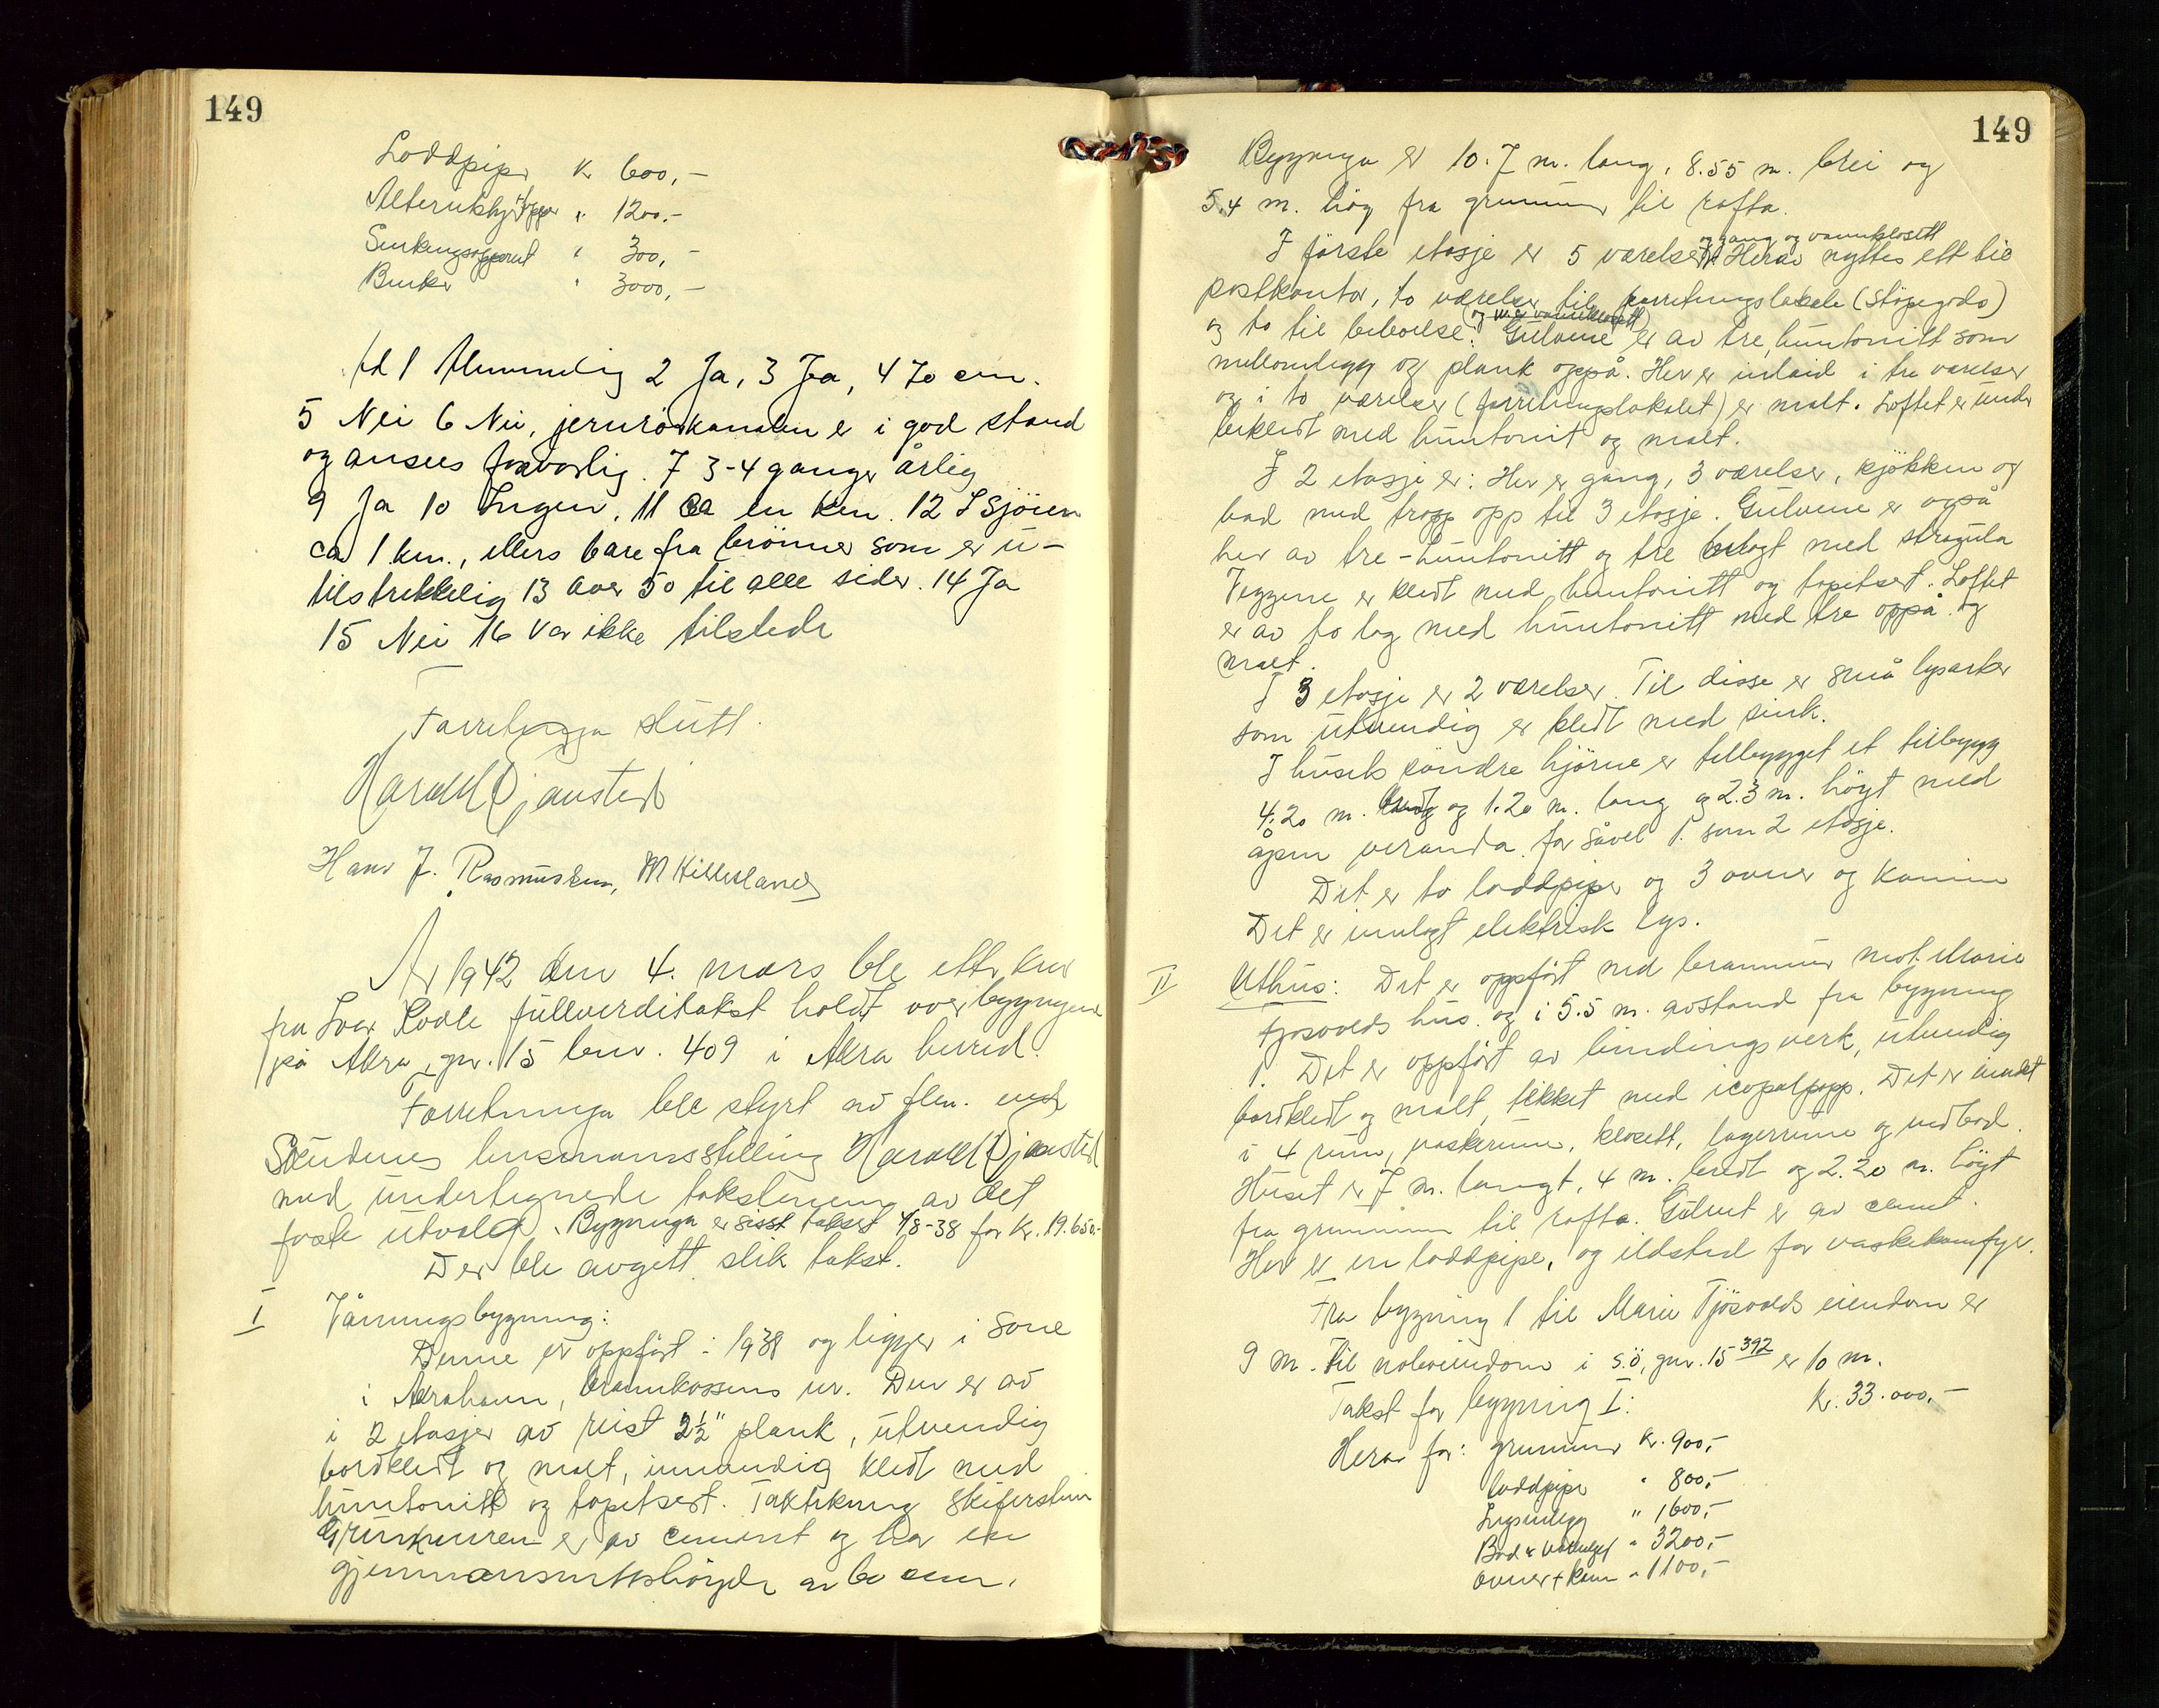 149
Loddpiper K 600,-
" 1200.-
" 300,-
" 3000,-
Ad 1 Almindelig 2 Ja, 3 Ja, 4 70 cm.
5 Nei 6 Nei, jernrörkanalen er i god stand
og ansees forsvarlig. 7 3-4 ganger årlig
9 Ja 10 Ingen, 11 ca en km. 12 I Sjöen
ca 1 km., ellers bare fra brönner som er u-
tilstrekkelig 13 over 50 til alle sider. 14 Ja
15 Nei 16 Var ikke tilstede
Forretninga slutt.
Harald Djausted
Hans J. Rasmussen, M Hillesland
År 1942 den 4. mars ble etter krav
fra Ivar fullverditakst holdt over bygningene
på Åkra, gnr. 15 bnr. 409 i Åkra herred.
Forretninga ble styrt av flm. ved
Skudenes lensmannsstilling Harald Djausted
med undertegnede takstmenn av det
faste utvalg. Bygninga er sisst takset 4/8-38 for Kr. 19.650.-
Der ble avgitt slik takst.
I Våningsbygning:
Denne er oppfört i 1938 og ligger i Sone
i Åkrahamn, brannkassens nr. Den er av
i 2 etasjer av reist 2½" plank, utvendig
bordkledt og malt, innvendig kledt med
huntonitt og tapetsert. Taktekning skiferstein
Grunnmuren er av cement og har en
gjennomsnittshöyde av 60 cm.
149
Bygninga er 10.7 m. lang, 8.55 m. brei og
5,4 m. høg fra grunnmur til rafta.
og gang og vannklosett
I förste etasje er 5 værelser. Herav nyttes ett til
postkontor, to værelser til forretningslokale (Stöpegods)
og to til beboelse. Gulvene er av tre, huntonitt som
mellomlegg og plank oppå. Her er inlaid i tre værelser
og i to værelser (forretningslokalet) er malt. Loftet er under
bekledt med huntonit og malt.
I 2 etasje er: Her er gang, 3 værelser, kjökken og
bad med trapp opp til 3 etasje. Gulvene er også
her av tre-huntonitt og tre belagt med stragula
Veggene er kledt med huntonitt og tapetsert. Loftet
er av to lag med huntonitt med tre oppå og
malt.
I 3 etasje er 2 værelser. Til disse er små lysarker
som utvendig er kledt med sink.
I husets söndre hjörne er tilbygget et tilbygg
4.20 m. og 1.20 m. lang og 2.3 m. höyt med
åpen veranda for såvel 1. som 2 etasje.
Det er to loddpiper og 3 ovner og kamin
Det er innlagt elektrisk lys.
II Uthus: Det er oppfört med brannmur mot Marie
Tjosvolds hus og i 5.5 m. avstand fra bygning
1. Det er oppfört av bindingsverk, utvendig
bordkledt og malt, tekket med icopalpapp. Det er inndelt
i 4 rum, vaskerum, klosett, lagerrum og vedbod.
Huset er 7 m. langt, 4 m. bredt og 2.20 m. höyt
fra grunnmur til rafta. Gulvet er av cement.
Her er en loddpipe, og ildsted for vaskekomfyr.
Fra bygning 1 til Marie Tjösvolds eiendom er
9 m. Til naboeiendom i s.ö, gnr. 15 392 er 10 m.
Takst for bygning I: Kr. 33.000,-
Herav for: grunnmur Kr. 900,-
loddpipe " 800,-
Lysanlegg " 1600,-
Bad & " 3200,-
ovner + kam " 1100,-